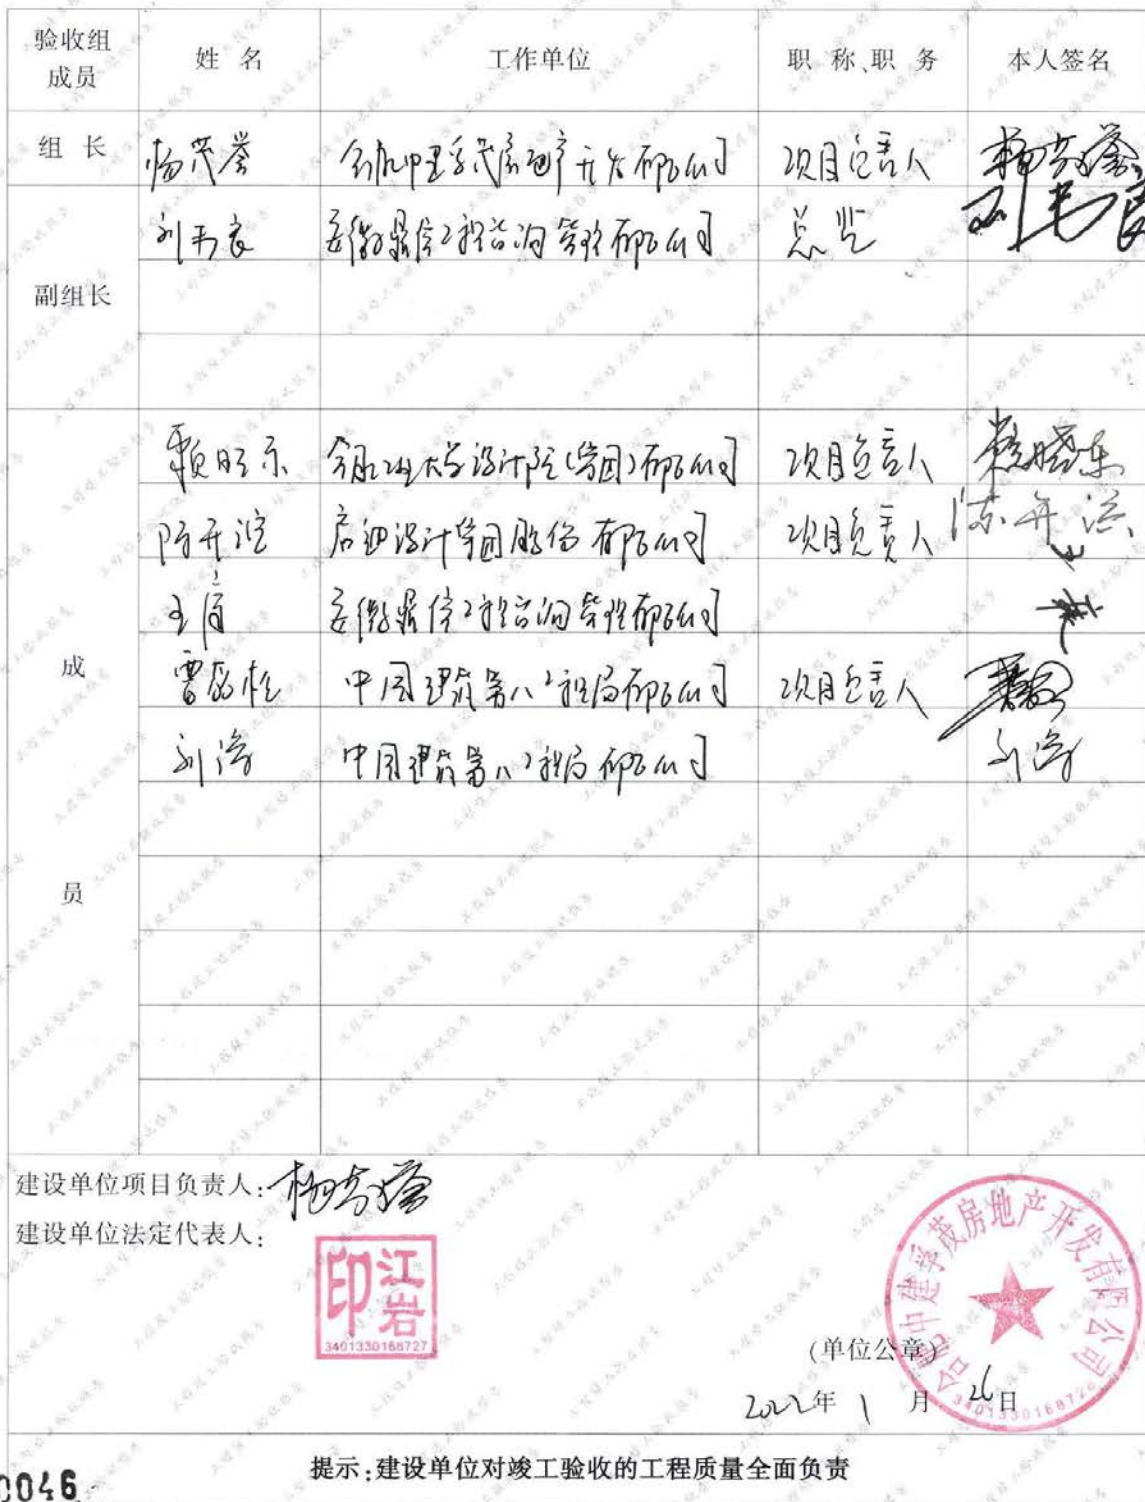 验收组成员 姓 名 工作单位 职 称、职 务 本人签名
组 长 杨茂誉 合肥中建孚茂房地产开发有限公司 项目负责人 杨茂誉
刘韦良 安徽鼎信工程咨询管理有限公司 总监
副组长
赖晓东 合肥工业大学设计院(集团)有限公司 项目负责人 赖晓东
陈开 启迪设计集团股份有限公司 项目负责人
安徽鼎信工程咨询管理有限公司
成 中国建筑第八工程局有限公司 项目负责人
刘涛 中国建筑第八工程局有限公司 刘涛
员
建设单位项目负责人: 杨茂誉
建设单位法定代表人:
江岩印
3401330168727
合肥中建孚茂房地产开发有限公司
(单位公章)
2022年 1 月 26日
提示:建设单位对竣工验收的工程质量全面负责
0046